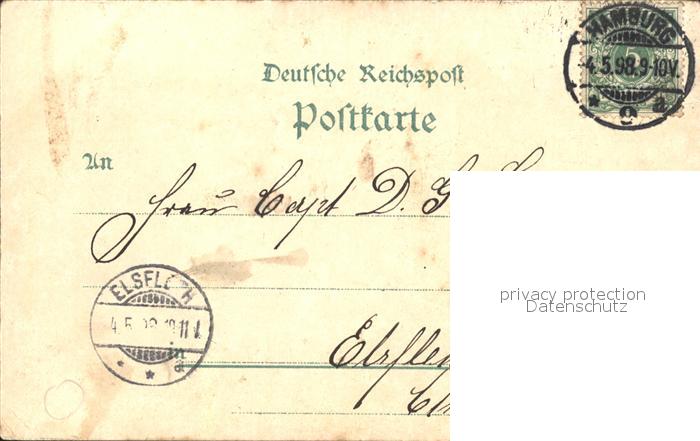 HAMBURG
5
4.5.98.9-10V.
* g a
Deutsche Reichspost
Postkarte
An
Frau Capt D. G
ELSFLETH
4.5.98 10-11V.
in
privacy protection
Datenschutz
Elsfle